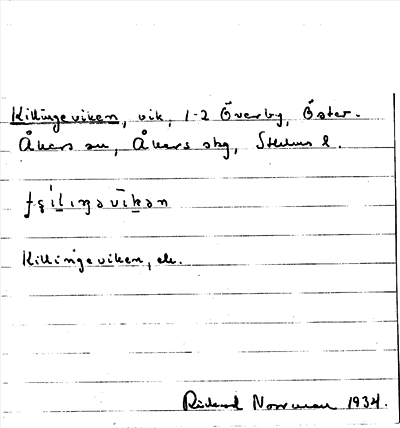 Killingeviken, vik, 1-2 Överby, Öster-
Åkers sn, Åkers skg, Sthlms l.
Killingeviken, ek.
Rickard Norrman 1934.